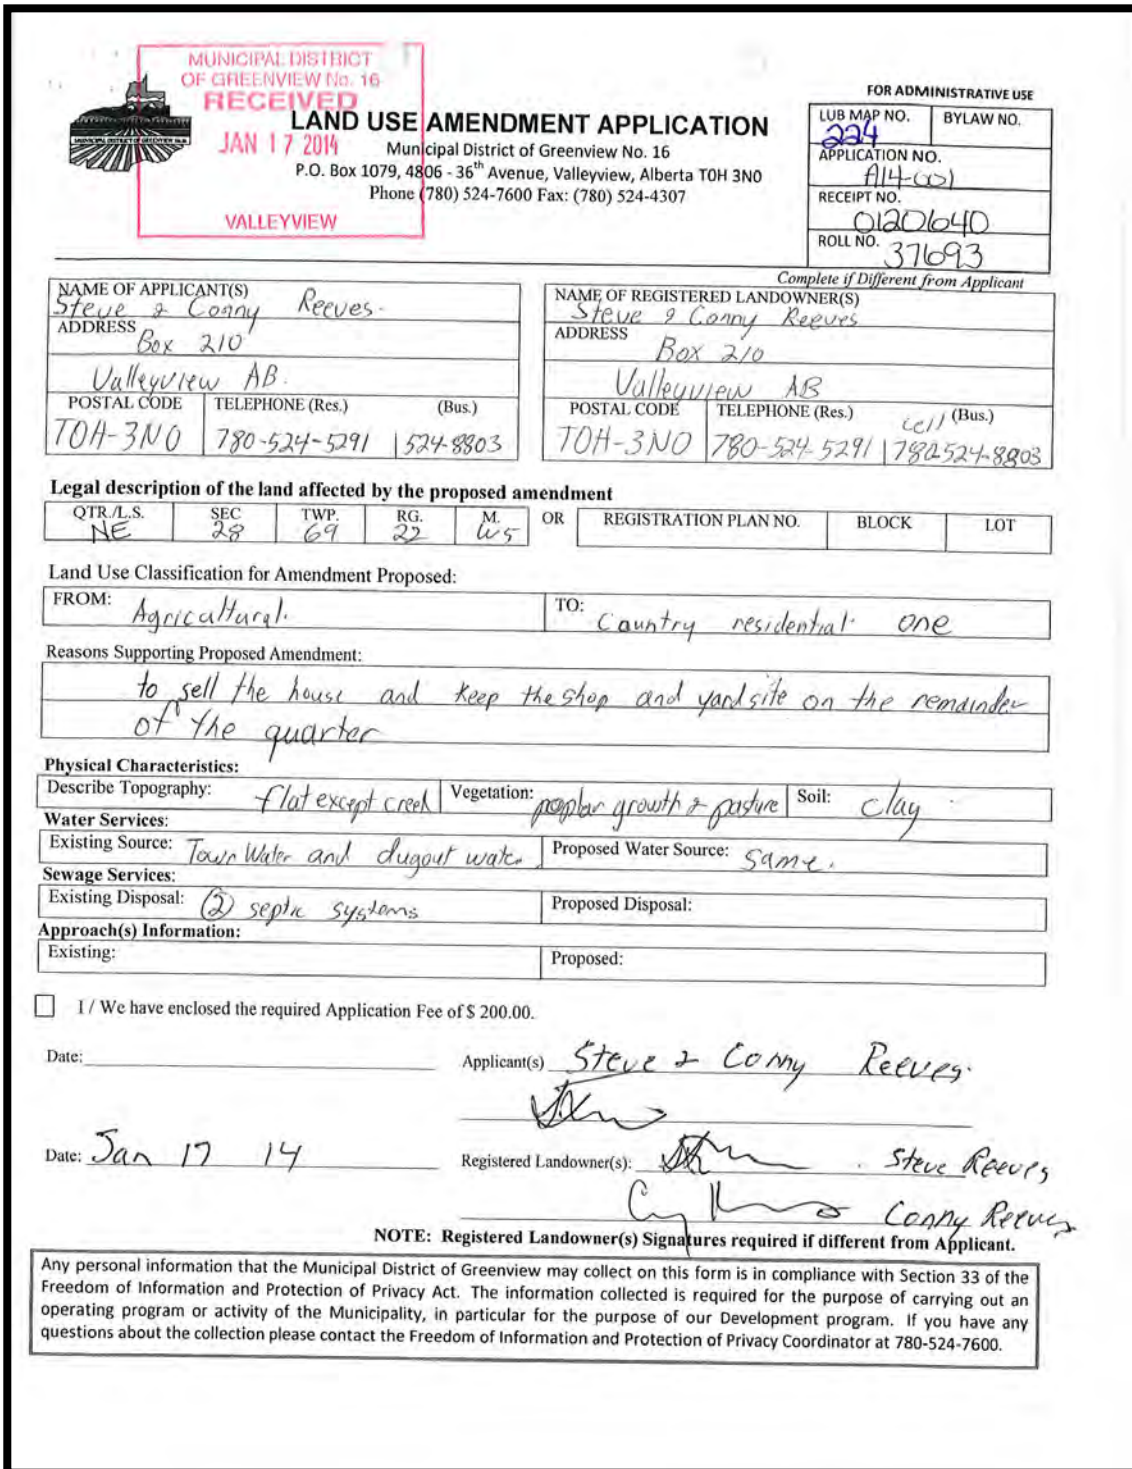 MUNICIPAL DISTRICT
OF GREENVIEW No. 16
RECEIVED
JAN 17 2014
VALLEYVIEW
MUNICIPAL DISTRICT OF GREENVIEW No.16
LAND USE AMENDMENT APPLICATION
Municipal District of Greenview No. 16
P.O. Box 1079, 4806 - 36th Avenue, Valleyview, Alberta T0H 3N0
Phone (780) 524-7600 Fax: (780) 524-4307
FOR ADMINISTRATIVE USE
LUB MAP NO. BYLAW NO.
224
APPLICATION NO.
A14-001
RECEIPT NO.
0120640
ROLL NO. 37693
Complete if Different from Applicant
NAME OF APPLICANT(S)
Steve & Conny Reeves.
ADDRESS
Box 210
Valleyview AB.
POSTAL CODE TELEPHONE (Res.) (Bus.)
T0H-3N0 780-524-5291 524-8803
NAME OF REGISTERED LANDOWNER(S)
Steve & Conny Reeves
ADDRESS
Box 210
Valleyview AB
POSTAL CODE TELEPHONE (Res.) cell (Bus.)
T0H-3N0 780-524-5291 780-524-8803
Legal description of the land affected by the proposed amendment
QTR./L.S. SEC TWP. RG. M. OR REGISTRATION PLAN NO. BLOCK LOT
NE 28 69 22 W5
Land Use Classification for Amendment Proposed:
FROM: Agricultural. TO: Country residential one
Reasons Supporting Proposed Amendment:
to sell the house and keep the shop and yardsite on the remainder
of the quarter
Physical Characteristics:
Describe Topography: flat except creek Vegetation: poplar growth & pasture Soil: clay
Water Services:
Existing Source: Town Water and dugout water Proposed Water Source: same.
Sewage Services:
Existing Disposal: (2) septic systems Proposed Disposal:
Approach(s) Information:
Existing: Proposed:
I / We have enclosed the required Application Fee of $ 200.00.
Date: Applicant(s) Steve & Conny Reeves.
Date: Jan 17 14 Registered Landowner(s): Steve Reeves
Conny Reeves
NOTE: Registered Landowner(s) Signatures required if different from Applicant.
Any personal information that the Municipal District of Greenview may collect on this form is in compliance with Section 33 of the
Freedom of Information and Protection of Privacy Act. The information collected is required for the purpose of carrying out an
operating program or activity of the Municipality, in particular for the purpose of our Development program. If you have any
questions about the collection please contact the Freedom of Information and Protection of Privacy Coordinator at 780-524-7600.